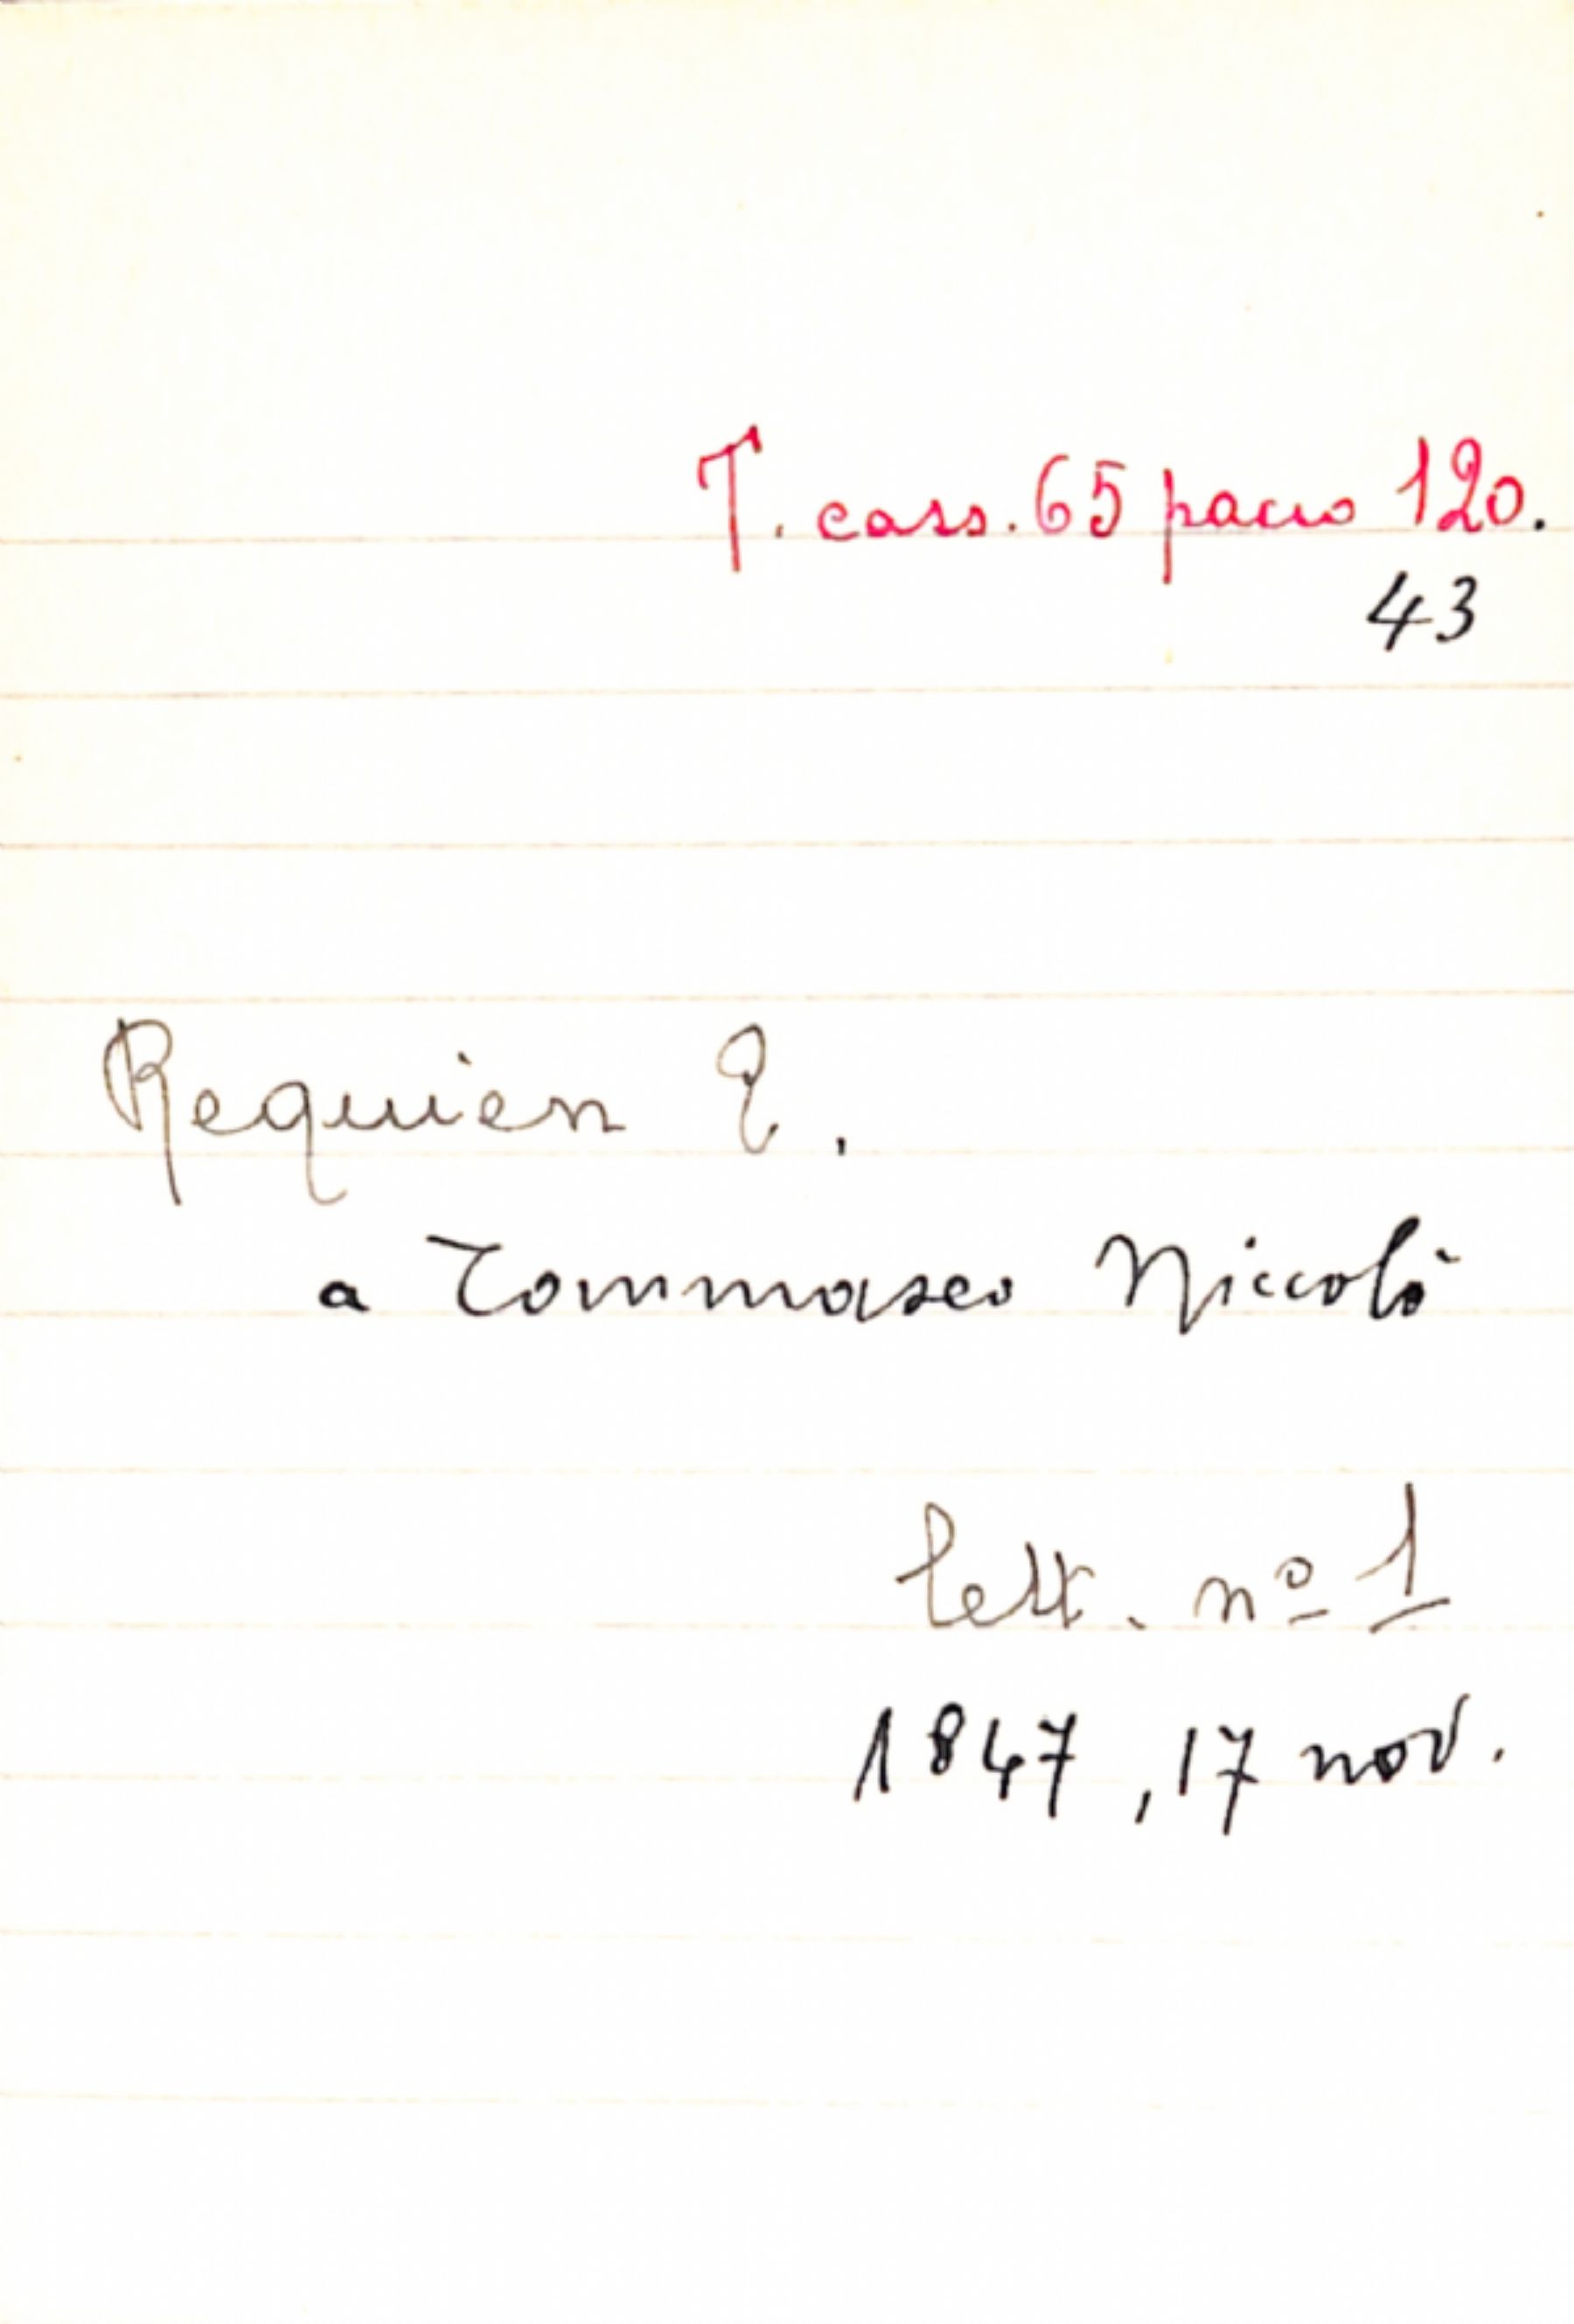 T. cass. 65 pacco 120.
43
Requien E.
a Tommaseo Niccolò
lett. nº 1
1847, 17 nov.